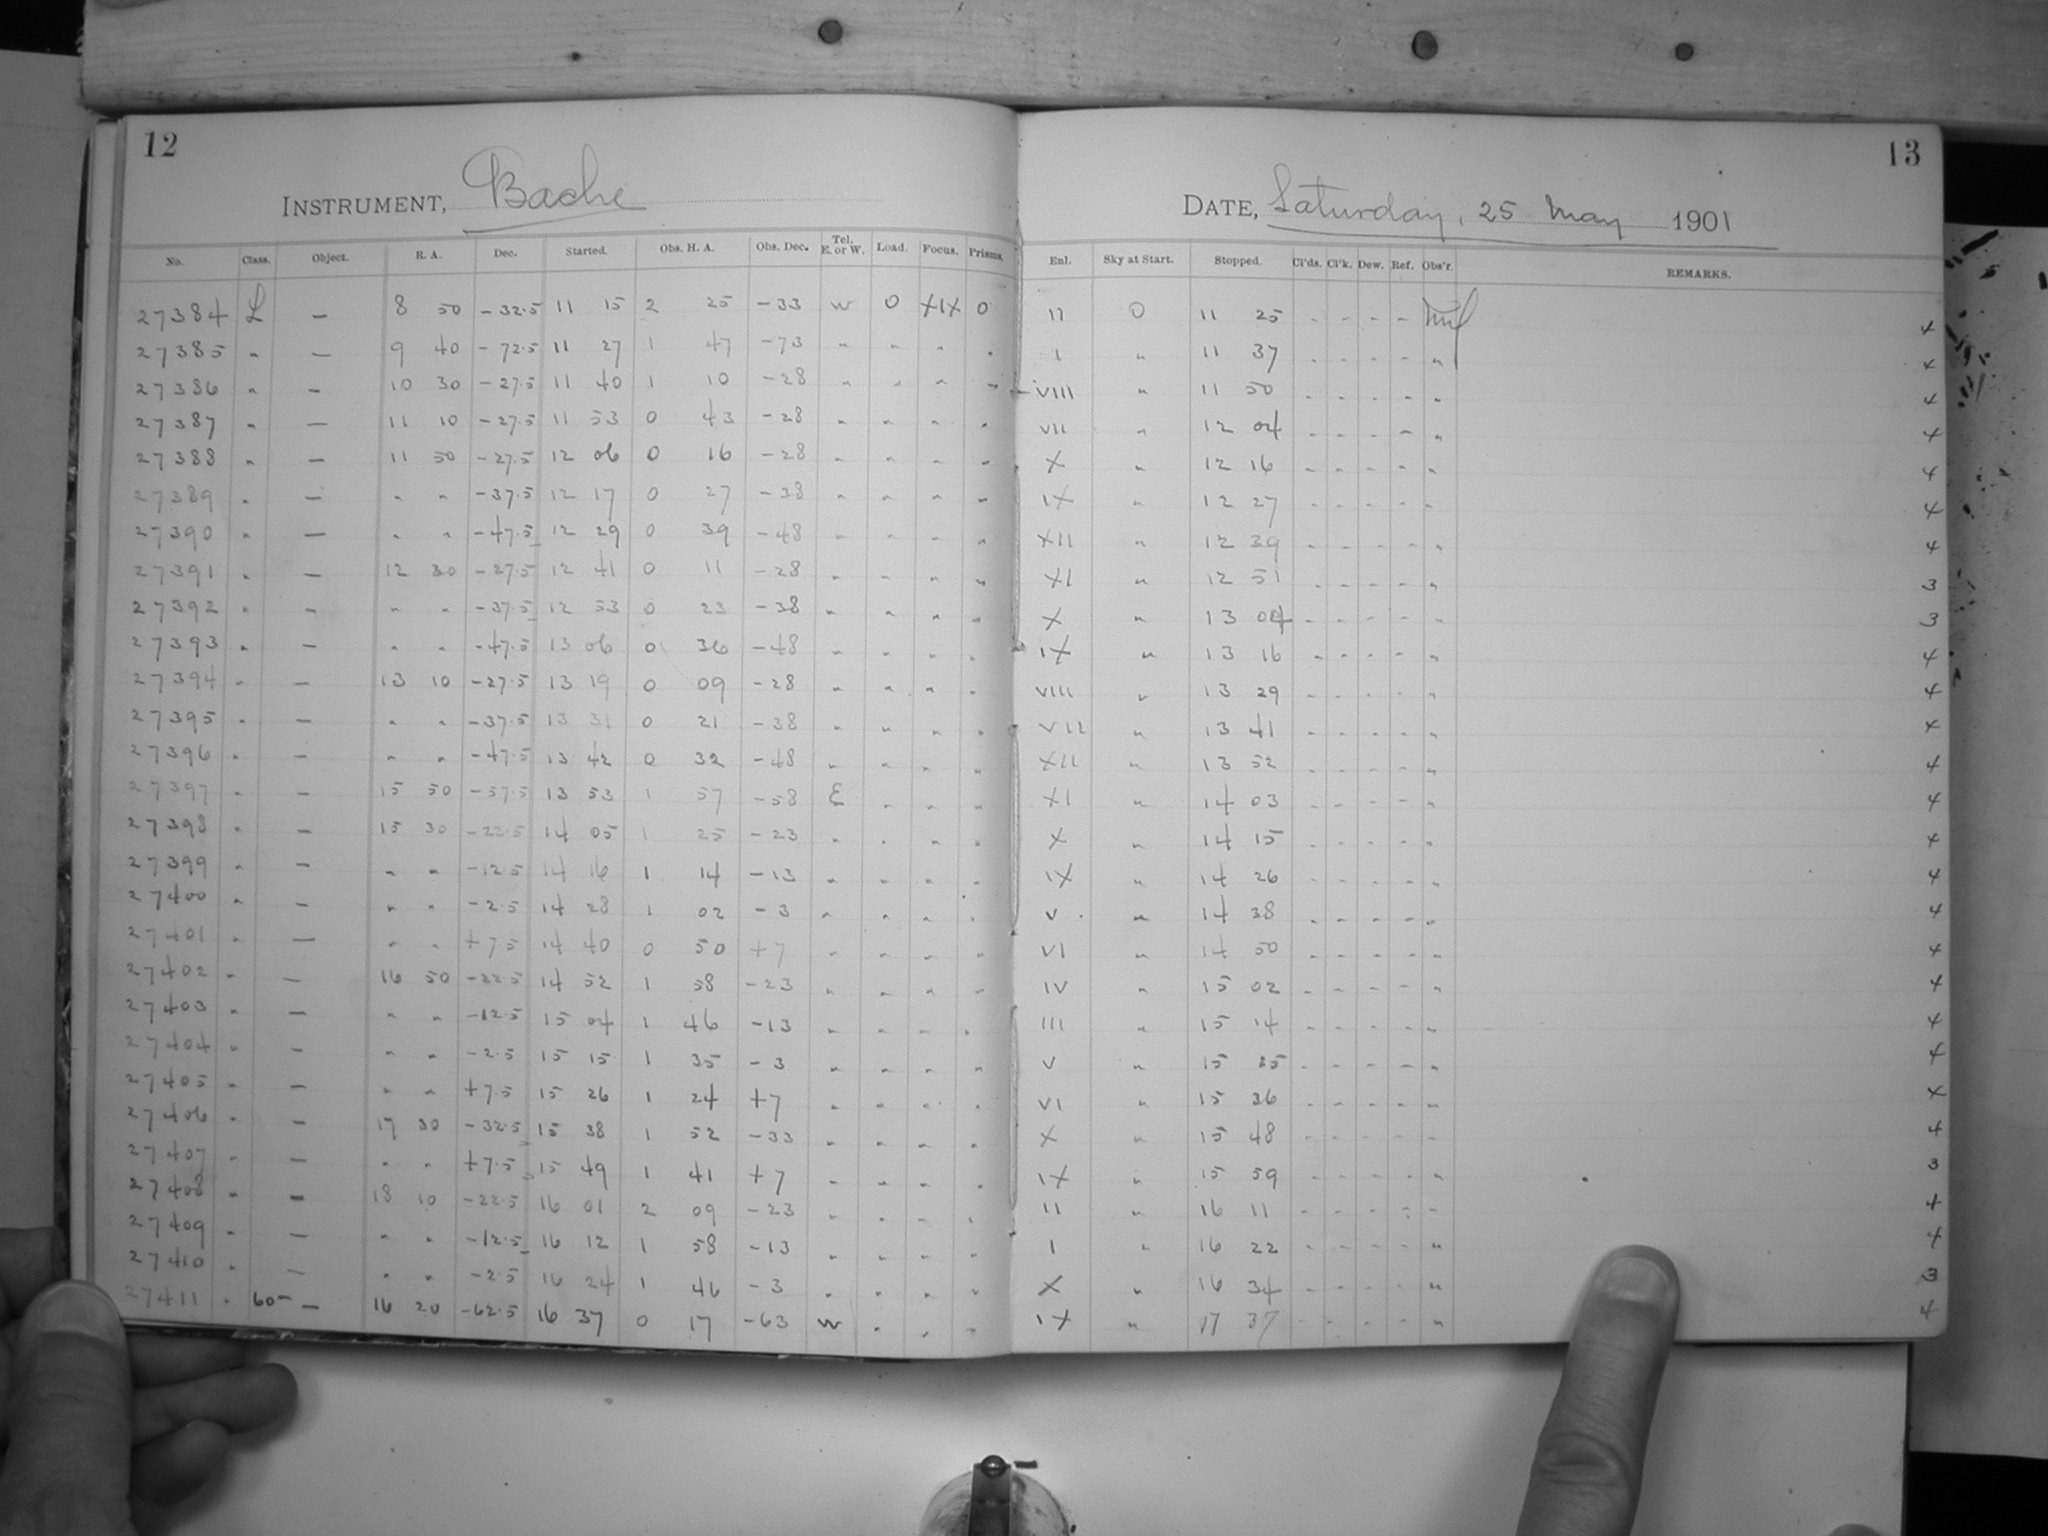 12
INSTRUMENT, Bache
No. Class. Object. R. A. Dec. Started. Obs. H. A. Obs. Dec. Tel. E. or W. Load. Focus. Prisms.
27384 L — 8 50 -32.5 11 15 2 25 -33 W 0 XIX 0
27385 " — 9 40 -72.5 11 27 1 47 -73 " " " "
27386 " — 10 30 -27.5 11 40 1 10 -28 " " " "
27387 " — 11 10 -27.5 11 53 0 43 -28 " " " "
27388 " — 11 50 -27.5 12 06 0 16 -28 " " " "
27389 " — " " -37.5 12 17 0 27 -38 " " " "
27390 " — " " -47.5 12 29 0 39 -48 " " " "
27391 " — 12 30 -27.5 12 41 0 11 -28 " " " "
27392 " — " " -37.5 12 53 0 23 -38 " " " "
27393 " — " " -47.5 13 06 0 36 -48 " " " "
27394 " — 13 10 -27.5 13 19 0 09 -28 " " " "
27395 " — " " -37.5 13 31 0 21 -38 " " " "
27396 " — " " -47.5 13 42 0 32 -48 " " " "
27397 " — 15 50 -57.5 13 53 1 57 -58 E " " "
27398 " — 15 30 -22.5 14 05 1 25 -23 " " " "
27399 " — " " -12.5 14 16 1 14 -13 " " " "
27400 " — " " -2.5 14 28 1 02 -3 " " " "
27401 " — " " +7.5 14 40 0 50 +7 " " " "
27402 " — 16 50 -22.5 14 52 1 58 -23 " " " "
27403 " — " " -12.5 15 04 1 46 -13 " " " "
27404 " — " " -2.5 15 15 1 35 -3 " " " "
27405 " — " " +7.5 15 26 1 24 +7 " " " "
27406 " — 17 30 -32.5 15 38 1 52 -33 " " " "
27407 " — " " +7.5 15 49 1 41 +7 " " " "
27408 " — 18 10 -22.5 16 01 2 09 -23 " " " "
27409 " — " " -12.5 16 12 1 58 -13 " " " "
27410 " — " " -2.5 16 24 1 46 -3 " " " "
27411 " 60m — 16 20 -62.5 16 37 0 17 -63 W " " "
13
DATE, Saturday, 25 May 1901
Enl. Sky at Start. Stopped. Cl'ds. Cl'k. Dew. Ref. Obs'r. REMARKS.
II 0 11 25 - - - - 4
I " 11 37 - - - - " 4
VIII " 11 50 - - - - " 4
VII " 12 04 - - - - " 4
X " 12 16 - - - - " 4
IX " 12 27 - - - - " 4
XII " 12 39 - - - - " 4
XI " 12 51 - - - - " 3
X " 13 04 - - - - " 3
IX " 13 16 - - - - " 4
VIII " 13 29 - - - - " 4
VII " 13 41 - - - - " 4
XII " 13 52 - - - - " 4
XI " 14 03 - - - - " 4
X " 14 15 - - - - " 4
IX " 14 26 - - - - " 4
V " 14 38 - - - - " 4
VI " 14 50 - - - - " 4
IV " 15 02 - - - - " 4
III " 15 14 - - - - " 4
V " 15 25 - - - - " 4
VI " 15 36 - - - - " 4
X " 15 48 - - - - " 4
IX " 15 59 - - - - " 3
II " 16 11 - - - - " 4
I " 16 22 - - - - " 4
X " 16 34 - - - - " 3
IX " 17 37 - - - - " 4